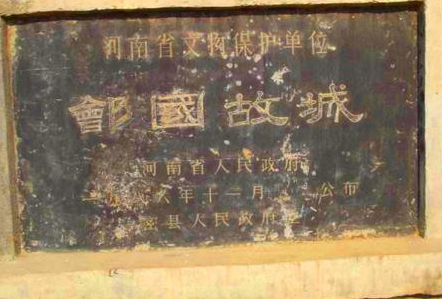 河南省文物保护单位
鄶國故城
河南省人民政府
一九 六年十一月 公布
密县人民政府